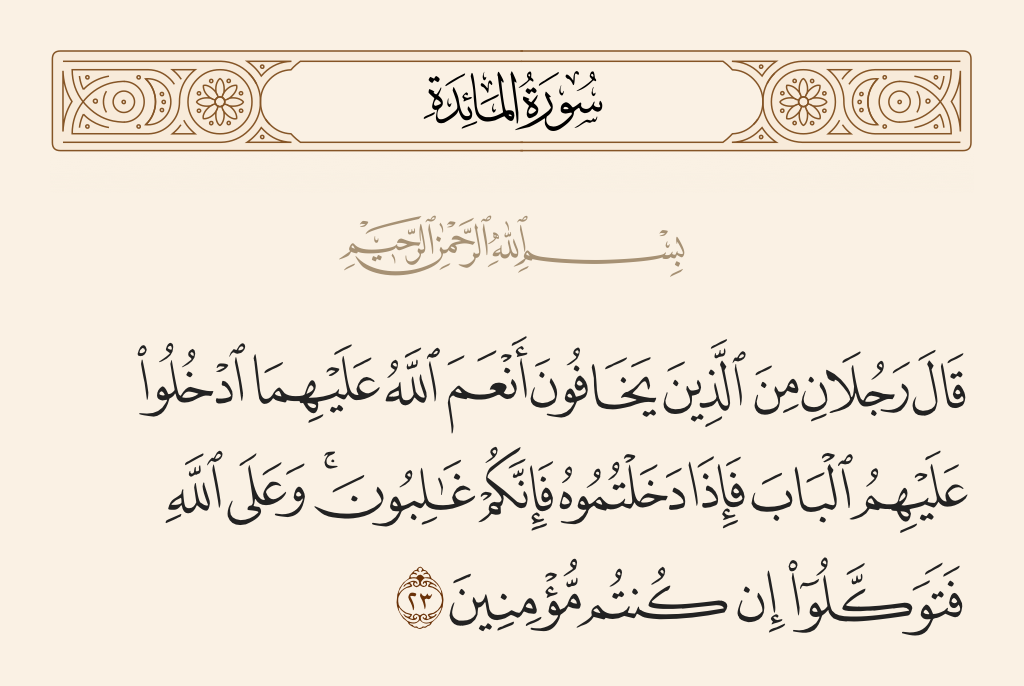 سُورَةُ المَائِدَةِ
بِسْمِ ٱللَّهِ ٱلرَّحْمَٰنِ ٱلرَّحِيمِ
قَالَ رَجُلَانِ مِنَ ٱلَّذِينَ يَخَافُونَ أَنْعَمَ ٱللَّهُ عَلَيْهِمَا ٱدْخُلُوا۟
عَلَيْهِمُ ٱلْبَابَ فَإِذَا دَخَلْتُمُوهُ فَإِنَّكُمْ غَـٰلِبُونَ ۚ وَعَلَى ٱللَّهِ
فَتَوَكَّلُوٓا۟ إِن كُنتُم مُّؤْمِنِينَ ٢٣